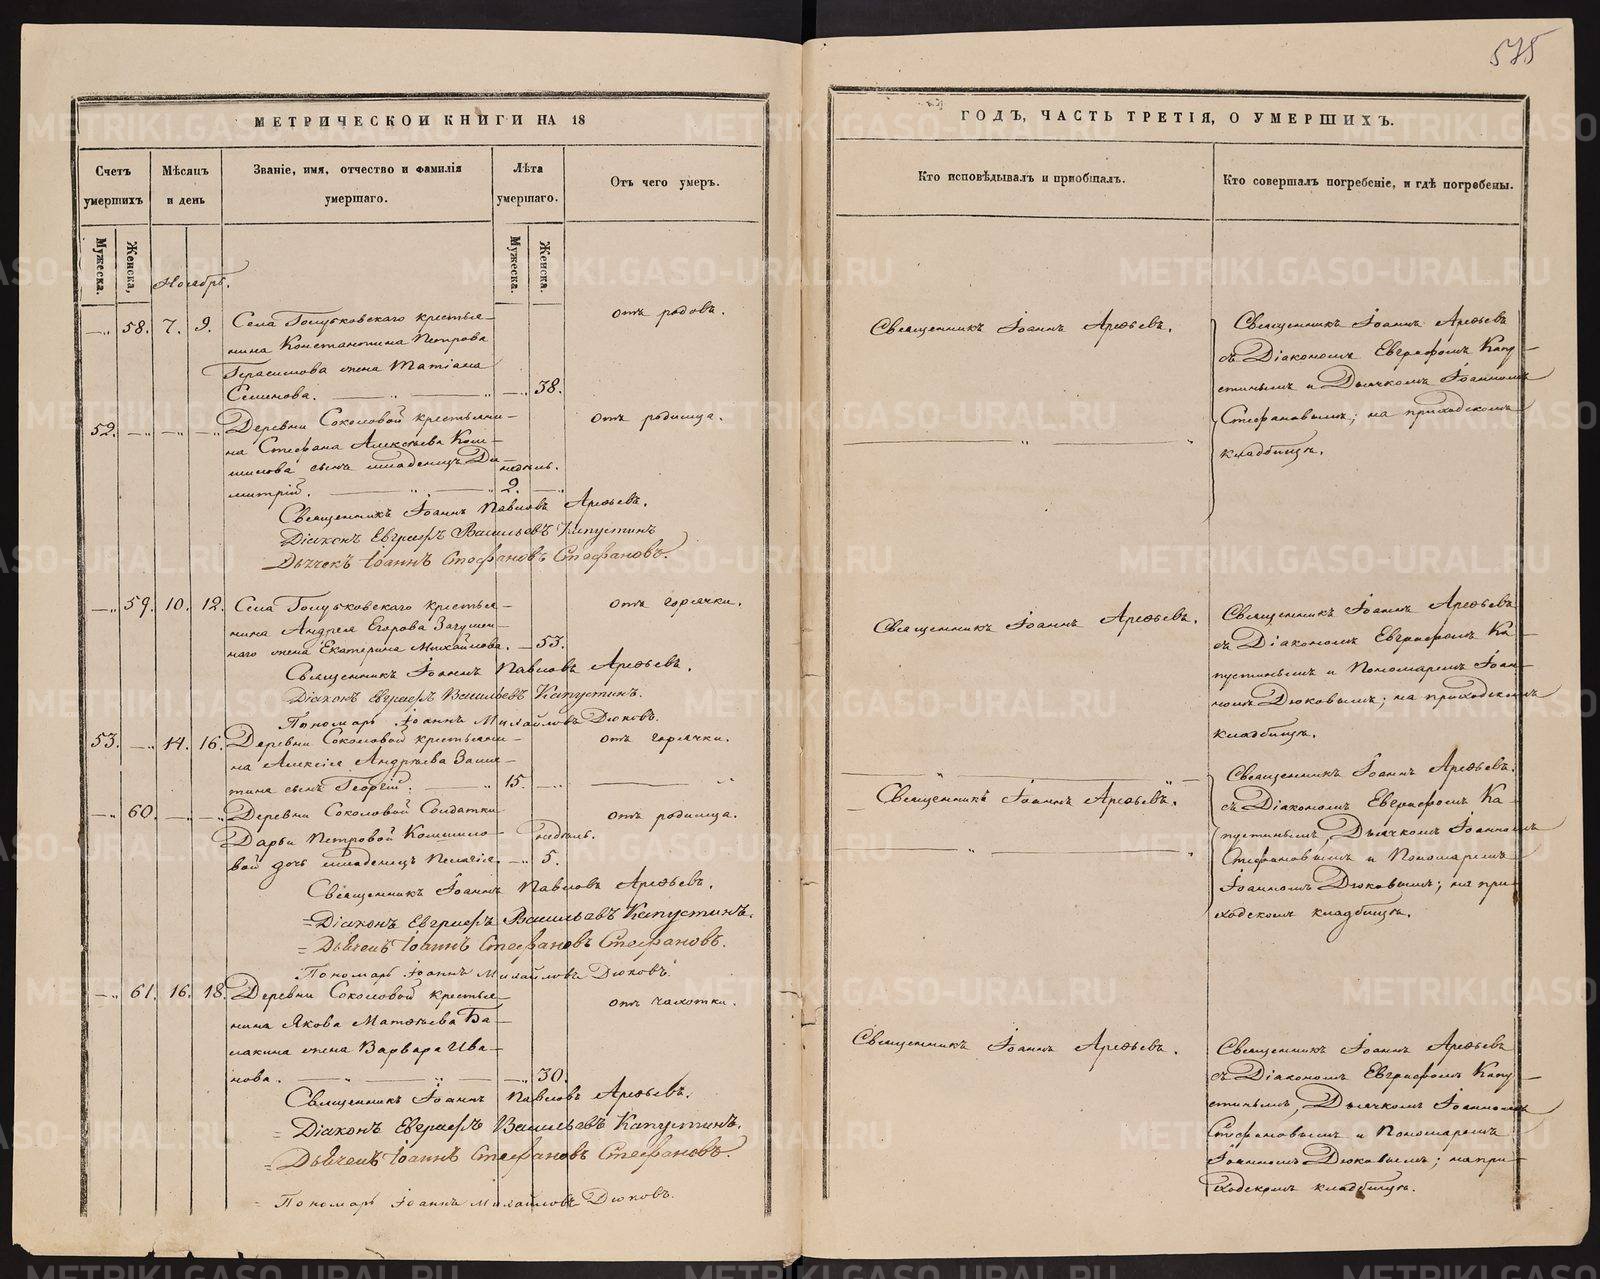 575
МЕТРИЧЕСКОЙ КНИГИ НА 18
Счетъ умершихъ
Мужеска.
Женска.
Мѣсяцъ и день
Званіе, имя, отчество и фамилія умершаго.
Лѣта умершаго.
Мужеска.
Женска.
Отъ чего умеръ.
Ноябрь.
58. 7. 9. Села Голубковскаго крестья-
нина Константина Петрова
Герасимова жена Татіана
Семенова. 38.
отъ родовъ.
52. Деревни Соколовой крестьяни-
на Стефана Алексѣева Кош-
шилова сынъ младенецъ Ди-
митрій. недѣль. 2.
отъ родимца.
Священникъ Іоаннъ Павловъ Арефьевъ.
Діаконъ Евграфъ Васильевъ Капустинъ
Дьячекъ Іоаннъ Стефановъ Стефановъ.
59. 10. 12. Села Голубковскаго крестья-
нина Андрея Егорова
жена Екатерина Михайлова. 53.
отъ горячки.
Священникъ Іоаннъ Павловъ Арефьевъ.
Діаконъ Евграфъ Васильевъ Капустинъ.
Пономарь Іоаннъ Михайловъ Дюковъ.
53. 14. 16. Деревни Соколовой крестьяни-
на Алексія Андрѣева
сынъ Георгій. 15.
отъ горячки.
60. Деревни Соколовой Солдатки
Дарьи Петровой
дочь младенецъ Пелагія. недѣль. 5.
отъ родимца.
Священникъ Іоаннъ Павловъ Арефьевъ.
Діаконъ Евграфъ Васильевъ Капустинъ.
Дьячекъ Іоаннъ Стефановъ Стефановъ.
Пономарь Іоаннъ Михайловъ Дюковъ.
61. 16. 18. Деревни Соколовой крестья-
нина Якова Матѳѣева Ба-
лакина жена Варвара Ива-
нова. 30.
отъ чахотки.
Священникъ Іоаннъ Павловъ Арефьевъ.
Діаконъ Евграфъ Васильевъ Капустинъ.
Дьячекъ Іоаннъ Стефановъ Стефановъ.
Пономарь Іоаннъ Михайловъ Дюковъ.
ГОДЪ, ЧАСТЬ ТРЕТІЯ, О УМЕРШИХЪ.
Кто исповѣдывалъ и пріобщалъ.
Кто совершалъ погребеніе, и гдѣ погребены.
Священникъ Іоаннъ Арефьевъ.
Священникъ Іоаннъ Арефьевъ
съ Діакономъ Евграфомъ Капу-
стинымъ и Дьячкомъ Іоанномъ
Стефановымъ; на приходскомъ
кладбищѣ.
Священникъ Іоаннъ Арефьевъ.
Священникъ Іоаннъ Арефьевъ
съ Діакономъ Евграфомъ Ка-
пустинымъ и Пономаремъ Іоан-
номъ Дюковымъ; на приходскомъ
кладбищѣ.
Священникъ Іоаннъ Арефьевъ.
Священникъ Іоаннъ Арефьевъ.
съ Діакономъ Евграфомъ Ка-
пустинымъ, Дьячкомъ Іоанномъ
Стефановымъ и Пономаремъ
Іоанномъ Дюковымъ; на при-
ходскомъ кладбищѣ.
Священникъ Іоаннъ Арефьевъ.
Священникъ Іоаннъ Арефьевъ
съ Діакономъ Евграфомъ Капу-
стинымъ, Дьячкомъ Іоанномъ
Стефановымъ и Пономаремъ
Іоанномъ Дюковымъ; на при-
ходскомъ кладбищѣ.
METRIKI.GASO-URAL.RU